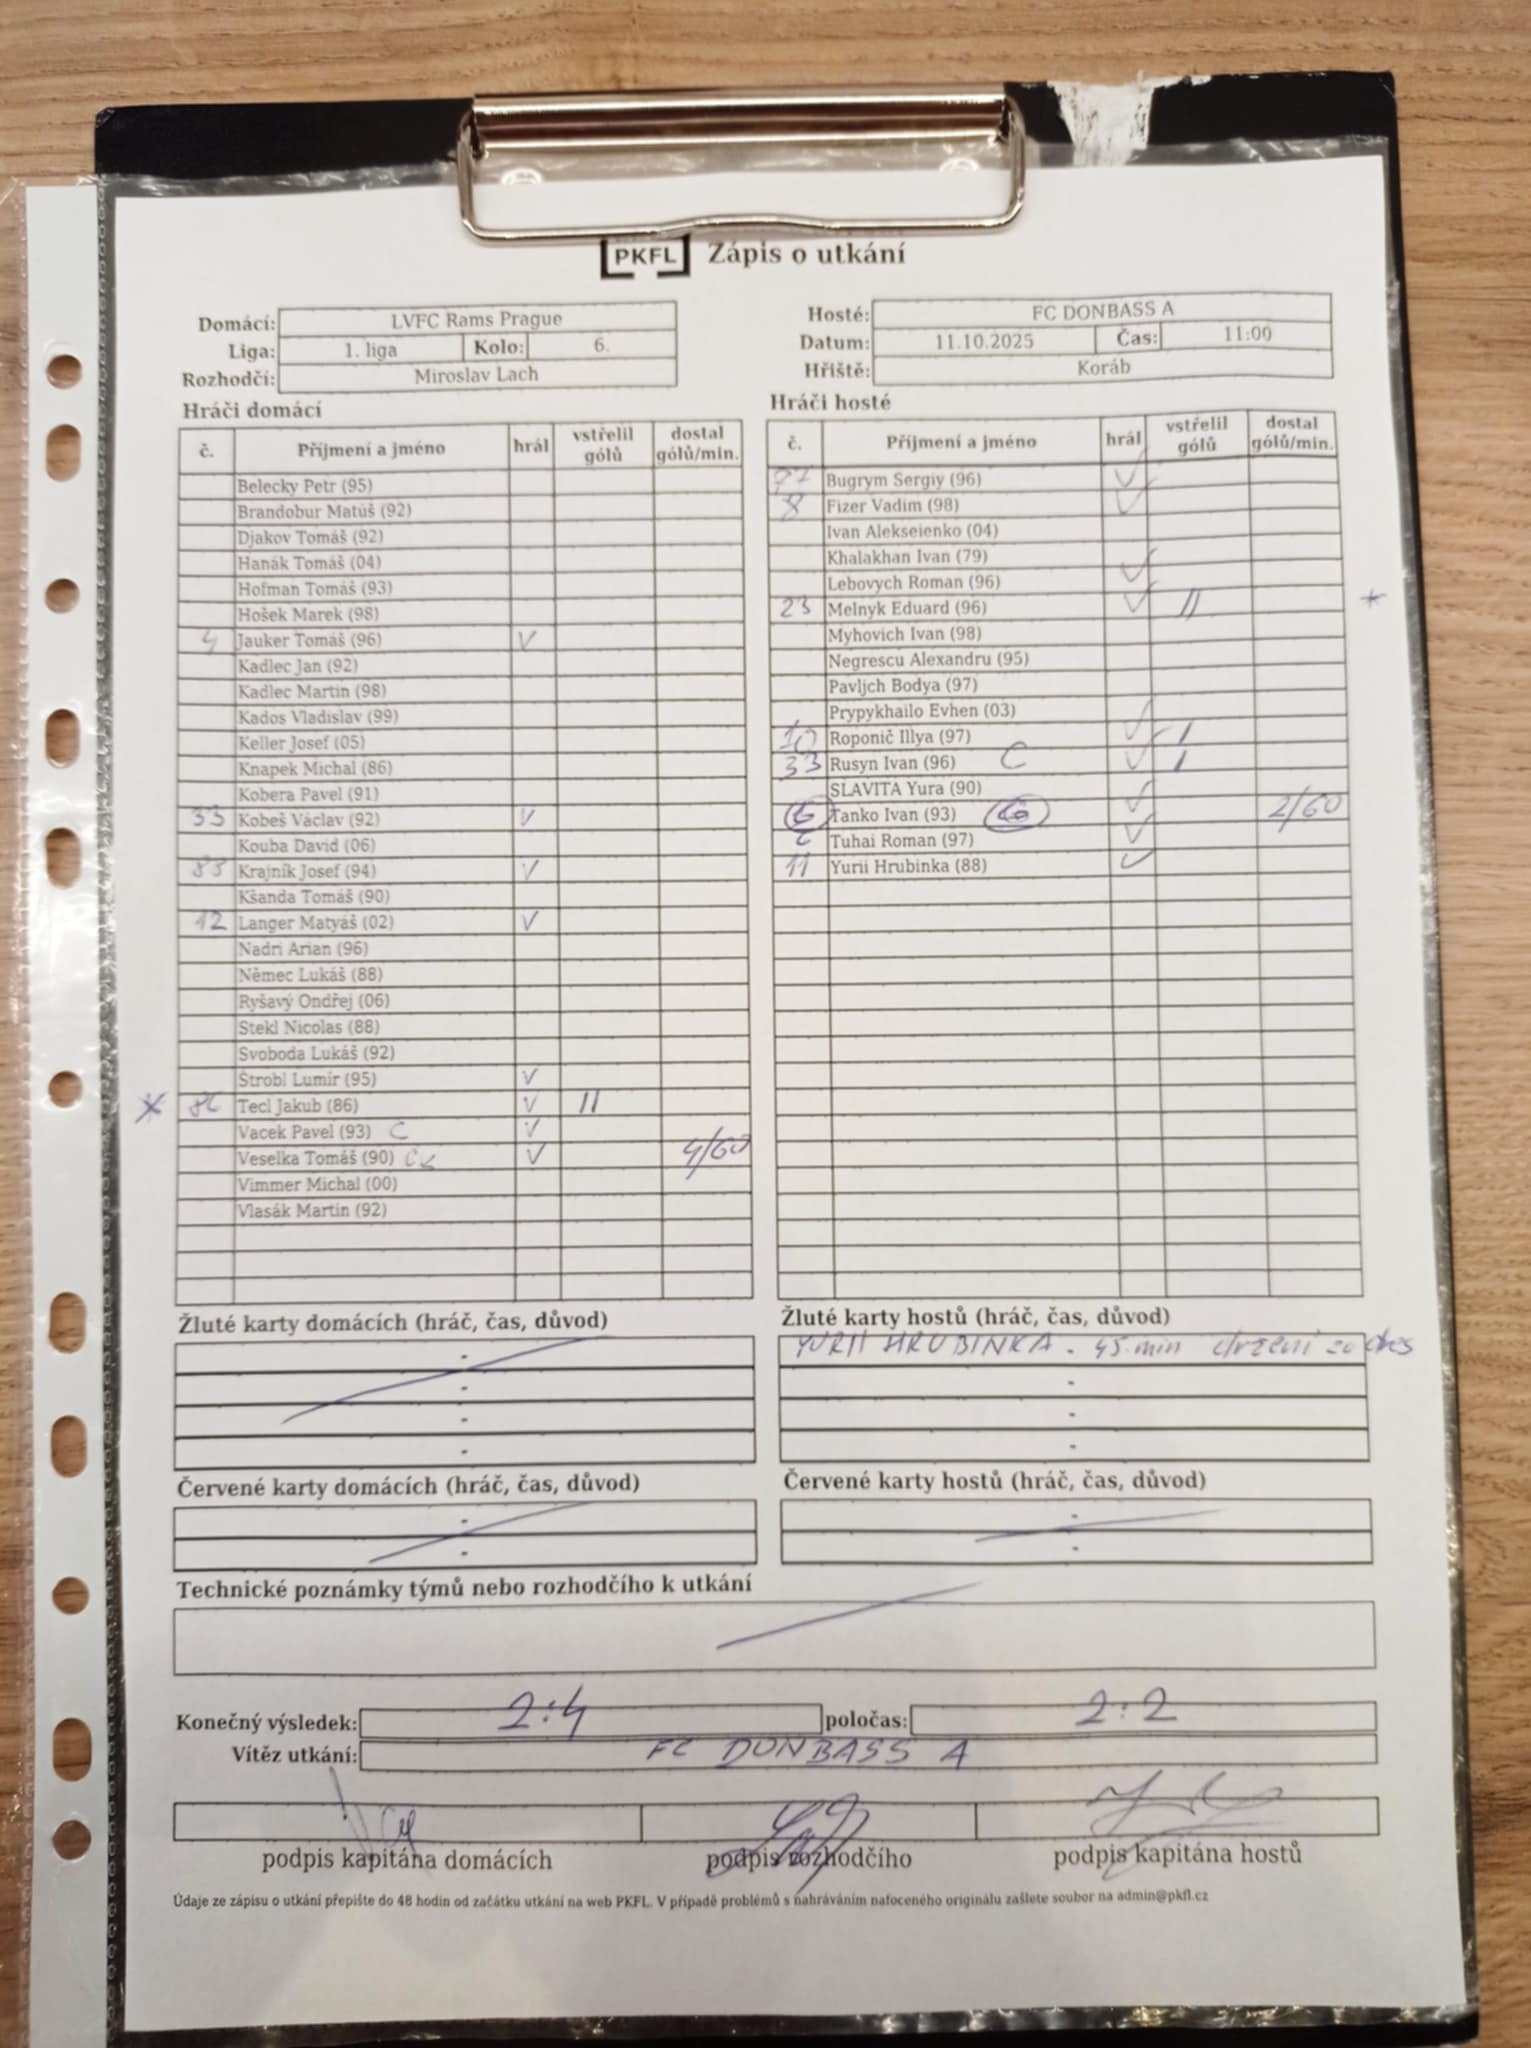 PKFL Zápis o utkání
Domácí: LVFC Rams Prague
Liga: 1. liga Kolo: 6.
Rozhodčí: Miroslav Lach
Hosté: FC DONBASS A
Datum: 11.10.2025 Čas: 11:00
Hřiště: Koráb
Hráči domácí
č. Příjmení a jméno hrál vstřelil gólů dostal gólů/min.
Belecky Petr (95)
Brandobur Matúš (92)
Djakov Tomáš (92)
Hanák Tomáš (04)
Hofman Tomáš (93)
Hošek Marek (98)
4 Jauker Tomáš (96) V
Kadlec Jan (92)
Kadlec Martin (98)
Kados Vladislav (99)
Keller Josef (05)
Knapek Michal (86)
Kobera Pavel (91)
33 Kobeš Václav (92) V
Kouba David (06)
Krajník Josef (94) V
Kšanda Tomáš (90)
12 Langer Matyáš (02) V
Nadri Arian (96)
Němec Lukáš (88)
Ryšavý Ondřej (06)
Stekl Nicolas (88)
Svoboda Lukáš (92)
Štrobl Lumír (95) V
* Tecl Jakub (86) V II
Vacek Pavel (93) C V
Veselka Tomáš (90) V 4/60
Vimmer Michal (00)
Vlasák Martin (92)
Hráči hosté
č. Příjmení a jméno hrál vstřelil gólů dostal gólů/min.
Bugrym Sergiy (96) ✓
8 Fizer Vadim (98) ✓
Ivan Alekseienko (04)
Khalakhan Ivan (79)
Lebovych Roman (96) ✓
23 Melnyk Eduard (96) ✓ II *
Myhovich Ivan (98)
Negrescu Alexandru (95)
Pavljch Bodya (97)
Prypykhailo Evhen (03) ✓
10 Roponič Illya (97) I
33 Rusyn Ivan (96) C ✓ I
SLAVITA Yura (90) ✓
Tanko Ivan (93) 2/60
Tuhai Roman (97) ✓
11 Yurii Hrubinka (88) ✓
Žluté karty domácích (hráč, čas, důvod)
-
-
-
-
Žluté karty hostů (hráč, čas, důvod)
YURII HRUBINKA - 45 min držení za dres
-
-
-
Červené karty domácích (hráč, čas, důvod)
-
-
Červené karty hostů (hráč, čas, důvod)
-
-
Technické poznámky týmů nebo rozhodčího k utkání
Konečný výsledek: 2:4 poločas: 2:2
Vítěz utkání: FC DONBASS A
podpis kapitána domácích podpis rozhodčího podpis kapitána hostů
Údaje ze zápisu o utkání přepište do 48 hodin od začátku utkání na web PKFL. V případě problémů s nahráváním nafoceného originálu zašlete soubor na admin@pkfl.cz